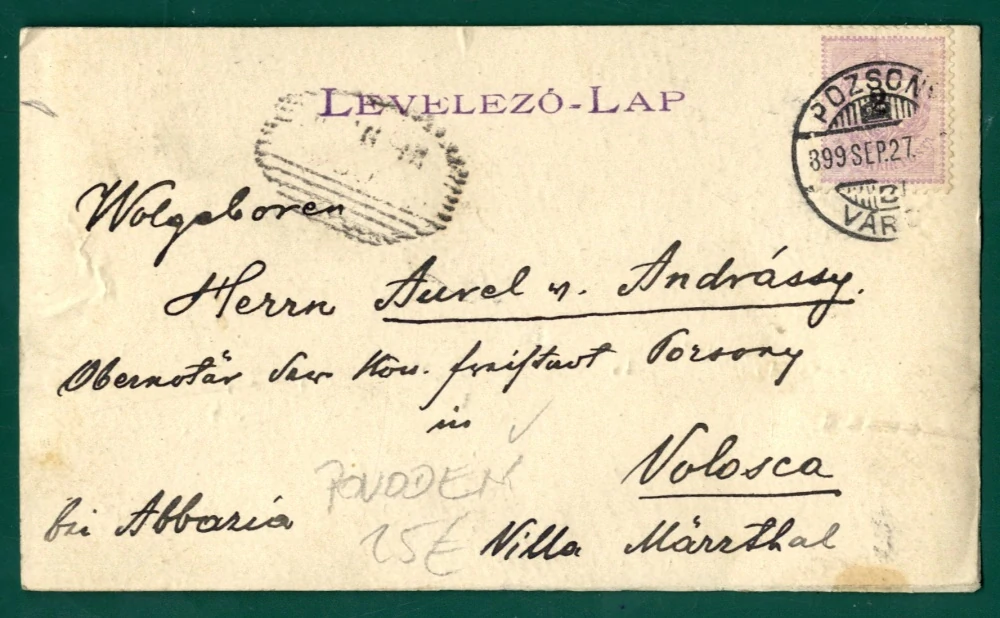 LEVELEZŐ-LAP
POZSON
2
899 SEP. 27.
VÁR
Wolgeboren
Herrn Aurel v. Andrássy.
Obernotär der Kön. freistadt Pozsony
in
Volosca
bei Abbazia
Villa Märzthal
POVODEŇ
15€